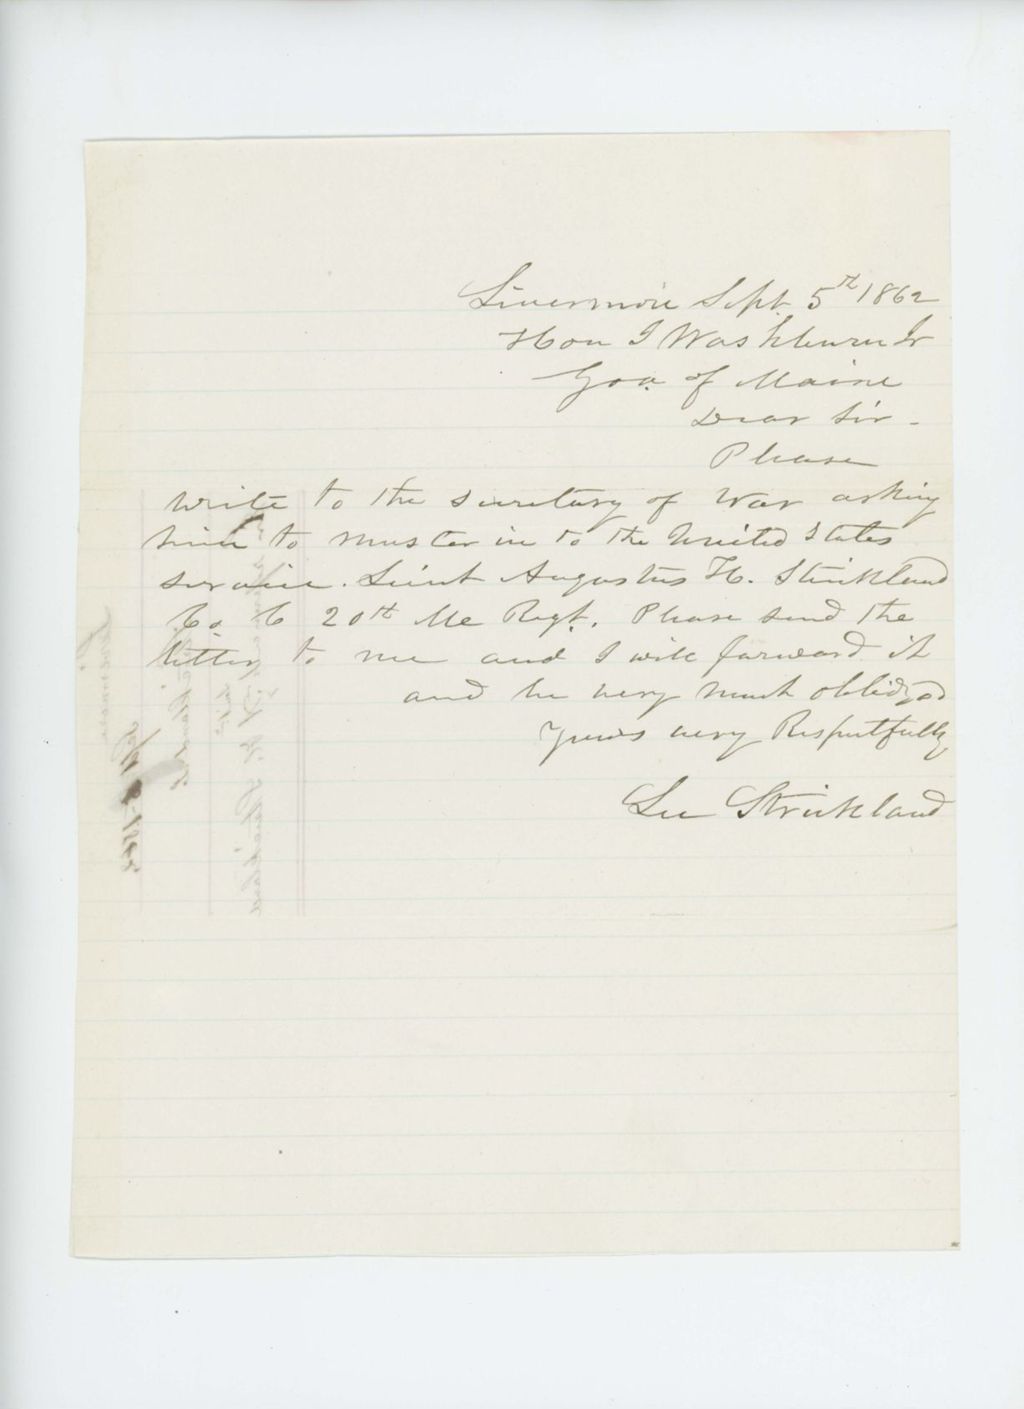 Livermore Sept. 5th 1862
Hon I Washburn Jr
Gov. of Maine
Dear Sir -
Please
write to the Secretary of War asking
him to muster in to the United States
service. Lieut Augustus H. Strickland
Co. C 20th Me Regt. Please send the
letter to me and I will forward it
and be very much obliged
Yours very Respectfully
Lee Strickland